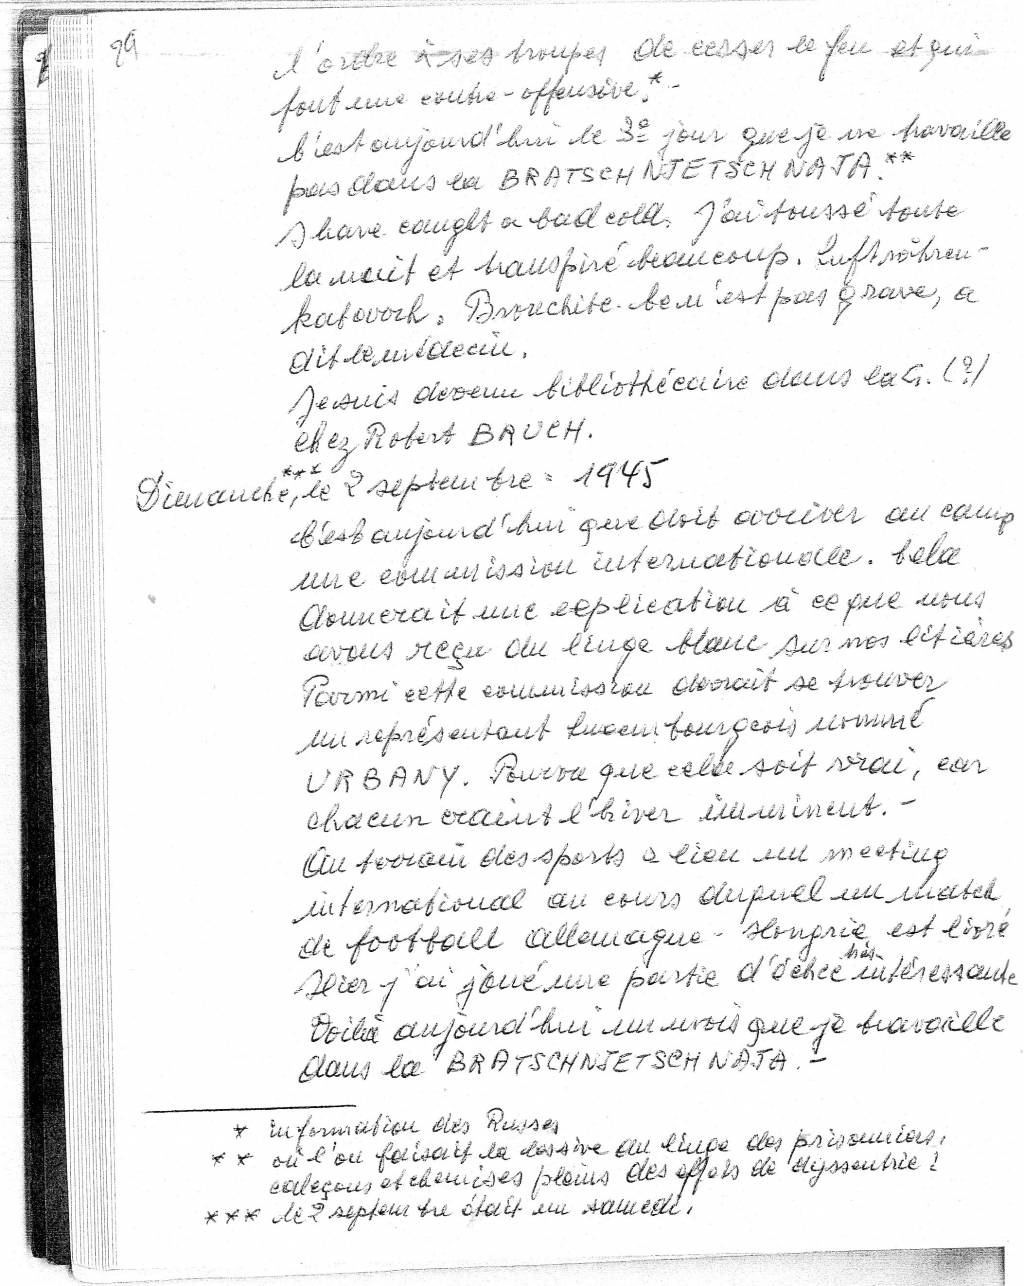 29
l'ordre à ses troupes de cesser le feu et qui
font une contre-offensive.* -
C'est aujourd'hui le 3e jour que je ne travaille
pas dans la BRATSCHNJETSCHNAJA.**
I have caught a bad cold. J'ai toussé toute
la nuit et transpiré beaucoup. Luftröhren-
katarrh. Bronchite. Ce n'est pas grave, a
dit le médecin.
Je suis devenu bibliothécaire dans la G. (?)
chez Robert BAUCH.
Dimanche,*** le 2 septembre = 1945
C'est aujourd'hui que doit arriver au camp
une commission internationale. Cela
donnerait une explication à ce que nous
avons reçu du linge blanc sur nos litières
Parmi cette commission devrait se trouver
un représentant luxembourgeois nommé
URBANY. Pourvu que cela soit vrai, car
chacun craint l'hiver imminent. -
Au terrain des sports a lieu un meeting
international au cours duquel un match
de football Allemagne - Hongrie est livré
Hier j'ai joué une partie d'échec très intéressante
Voilà aujourd'hui un mois que je travaille
dans la BRATSCHNJETSCHNAJA. -
* information des Russes
** où l'on faisait la lessive du linge des prisonniers,
caleçons et chemises pleins des effets de dyssentrie !
*** le 2 septembre était un samedi.